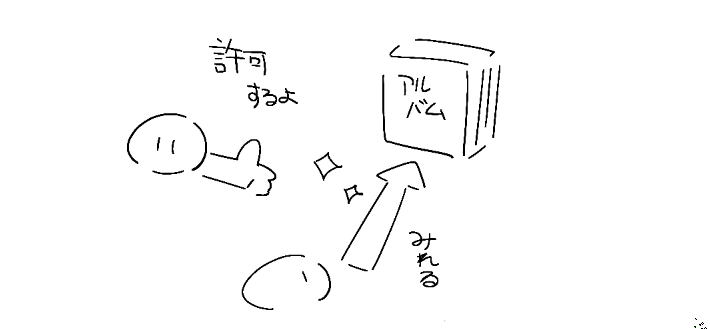 許可
するよ
アル
バム
みれる